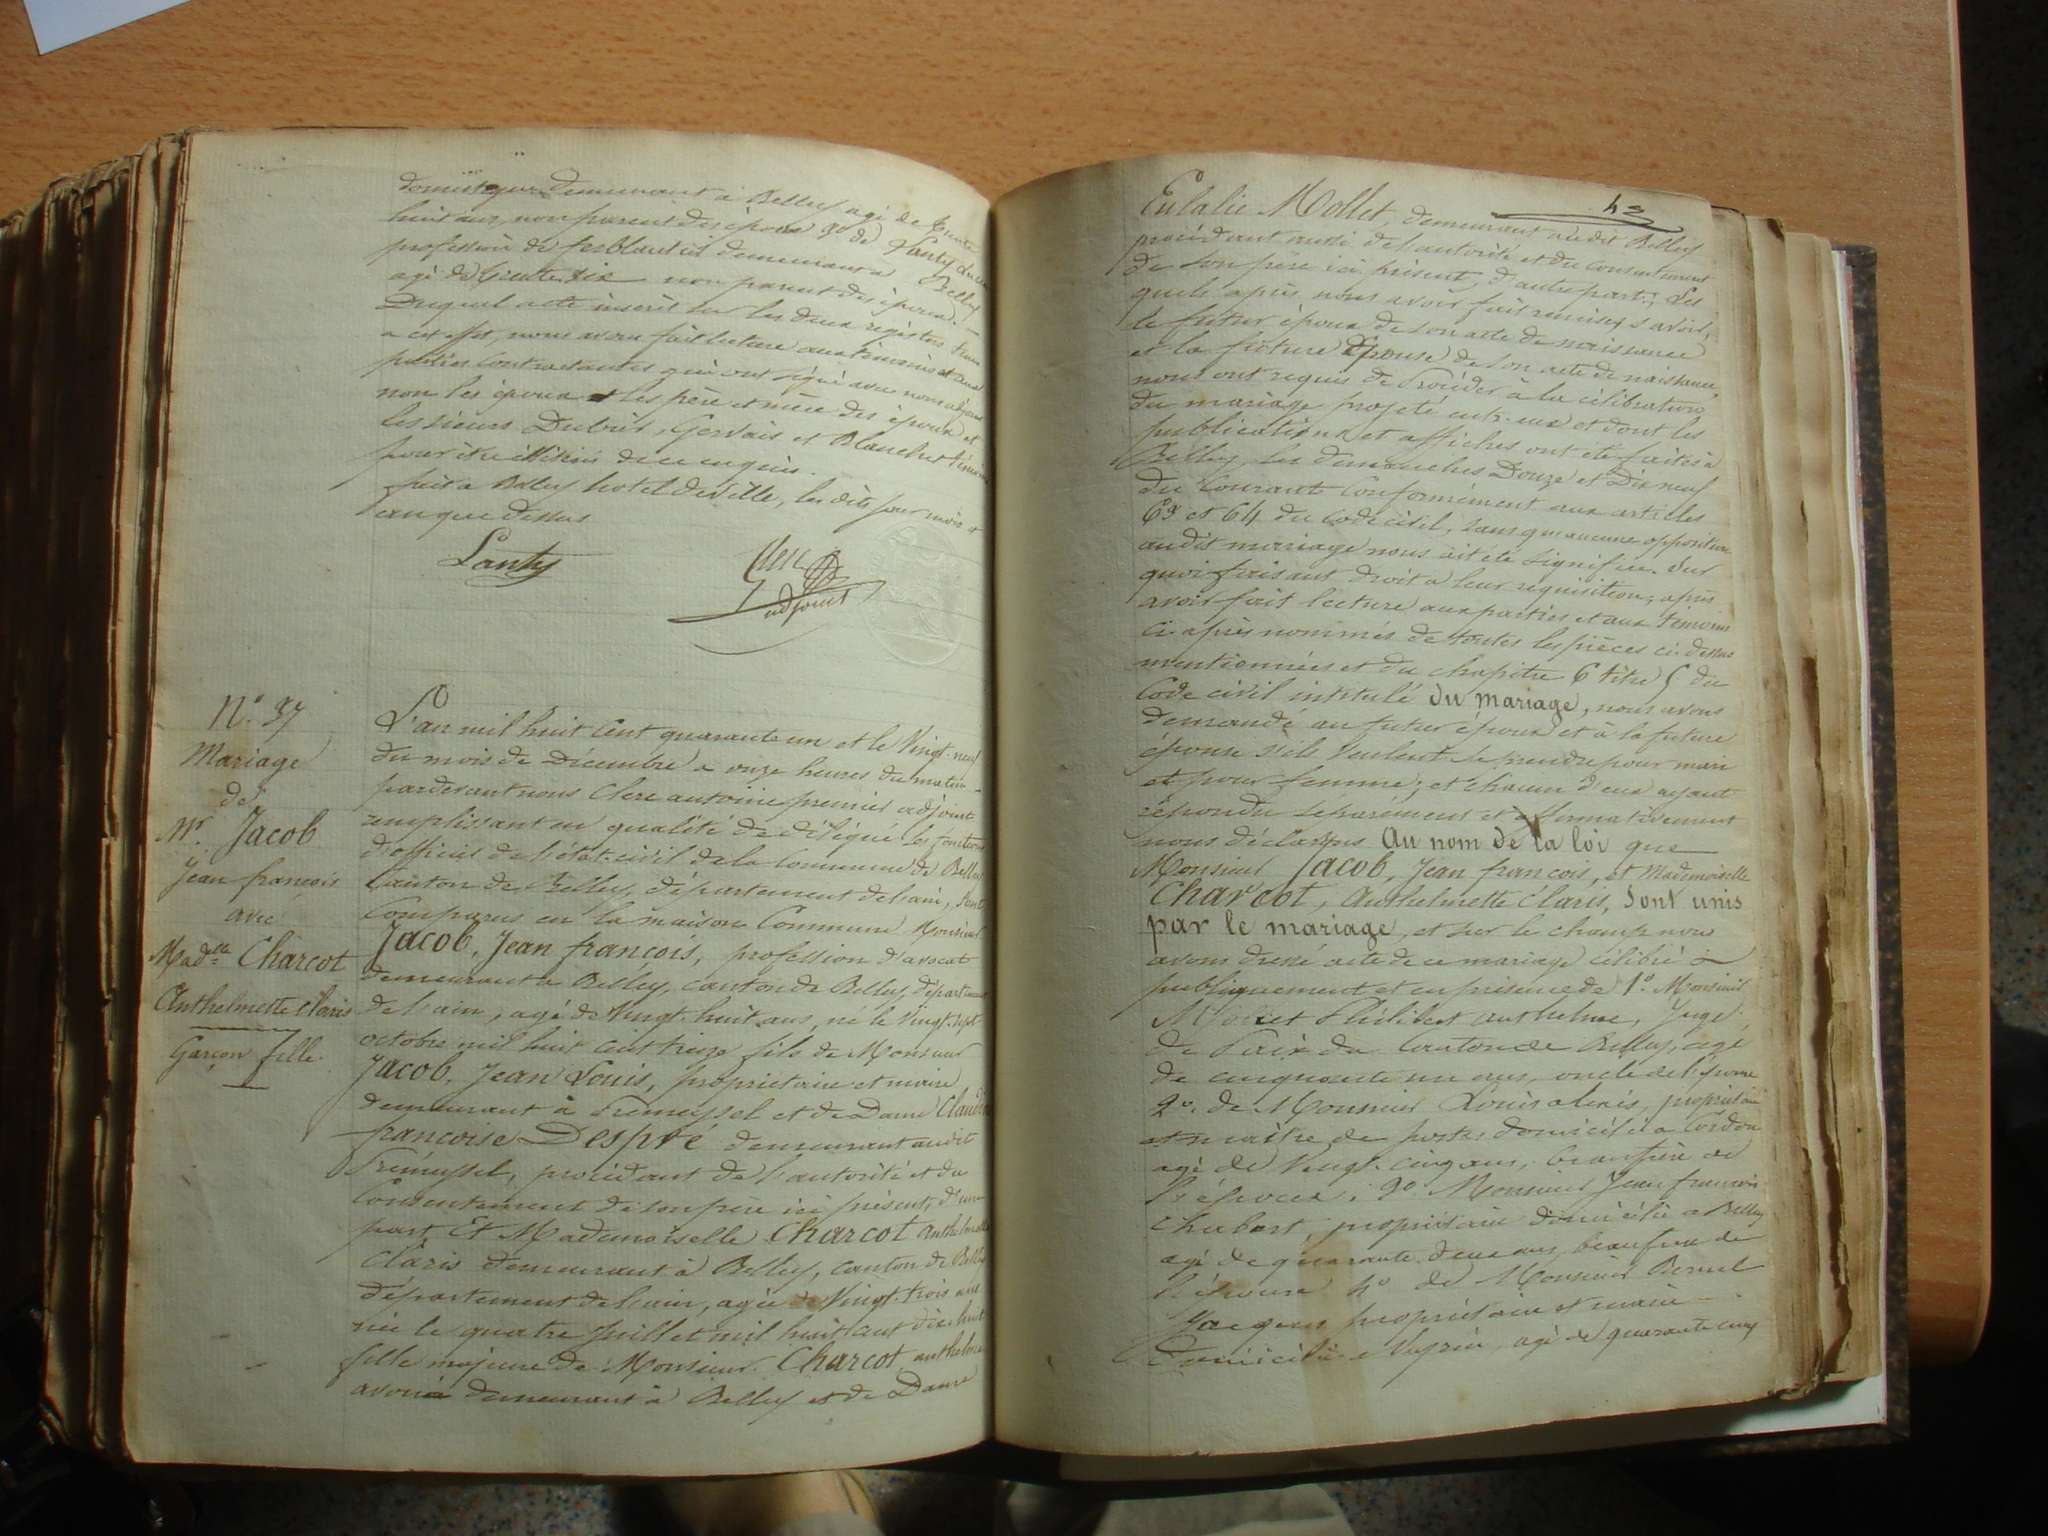 domestique demeurant à Belley agé de trente
huit ans, non parent des époux 4º de Lanty
profession de ferblantier demeurant à Belley
agé de trente six non parent des époux.
Duquel acte inscrit sur les deux registres tenus
a cet effet, nous avons fait lecture aux témoins et aux
parties contractantes qui ont signé avec nous
non les époux et les père et mère des époux et
les sieurs Dubuis, Gervais et Blanchet témoins
pour être de ce enquis.
fait à Belley hotel de ville, les dits jour mois et
an que dessus
Lanty
Clerc
adjoint
Nº 37
Mariage
de
Mr. Jacob
Jean françois
avec
Madlle Charcot
Anthelmette Claris
Garçon fille
L'an mil huit cent quarante un et le Vingt-neuf
du mois de Décembre à onze heures du matin
pardevant nous Clerc antoine premier adjoint
remplissant en qualité de délégué les fonctions
d'officier de l'état-civil de la Commune de Belley
Canton de Belley, département de l'ain, sont
Comparus en la maison Commune Monsieur
Jacob, Jean françois, profession d'avocat
demeurant à Belley, canton de Belley, département
de l'ain, agé de Vingt-huit ans, né le Vingt-sept
octobre mil huit cent treize fils de Monsieur
Jacob, Jean Louis, propriétaire et maire
demeurant à Prémeyzel et de Dame Claudine
françoise Despré demeurant audit
Prémeyzel, procédant de l'autorité et du
Consentement de son père ici présent, d'une
part, Et Mademoiselle Charcot Anthelmette
Claris demeurant à Belley, canton de Belley
département de l'ain, agée de Vingt-trois ans
née le quatre Juillet mil huit cent dix-huit
fille majeure de Monsieur Charcot, anthelme
avoué demeurant à Belley et de Dame
42
Eulalie Mollet, demeurant audit Belley
procédant aussi de l'autorité et du consentement
de son père ici présent, d'autre part; Les
quels après nous avoir fait remises, savoir,
le futur époux de son acte de naissance
et la future Epouse de son acte de naissance,
nous ont requis de Procéder à la célébration
du mariage projeté entr'eux et dont les
publications et affiches ont été faites à
Belley les dimanches Douze et Dix neuf
du Courant Conformément aux articles
63 et 64 du Code civil, sans que aucune opposition
audit mariage nous ait été signifiée. Sur
quoi faisant droit à leur requisition, après
avoir fait lecture aux parties et aux témoins
ci-après nommés de toutes les pièces ci-dessus
mentionnées et du chapitre 6 titre 5 du
Code civil intitulé du mariage, nous avons
demandé au futur époux et à la future
épouse s'ils veulent se prendre pour mari
et pour femme; et chacun d'eux ayant
répondu séparément et affirmativement
nous déclarons Au nom de la loi que
Monsieur Jacob, Jean françois, et Mademoiselle
Charcot, Anthelmette Claris, Sont unis
par le mariage, et sur le champ nous
avons dressé acte de ce mariage célébré
publiquement et en présence de 1º Monsieur
Philibert anthelme, Juge
de Paix du Canton de Belley, agé
de cinquante un ans, oncle de l'épouse
2º. de Monsieur Louis alexis, propriétaire
et maitre de postes domicilié à Cordon
agé de Vingt-cinq ans, beaufrère de
l'époux; 3º Monsieur Jean françois
Chabert, propriétaire domicilié à Belley
agé de quarante deux ans, beaufrère de
l'épouse 4º de Monsieur
Jacques propriétaire et maire
Domicilié à Veyrin, agé de quarante cinq